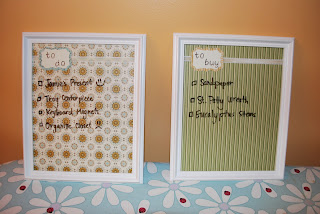 to
do
Jamie's Present
Tray Centerpiece
Keyboard Magnets
Organize Closet
to
buy
Sandpaper
St. Patty Wreath
Eucalyptus Stems